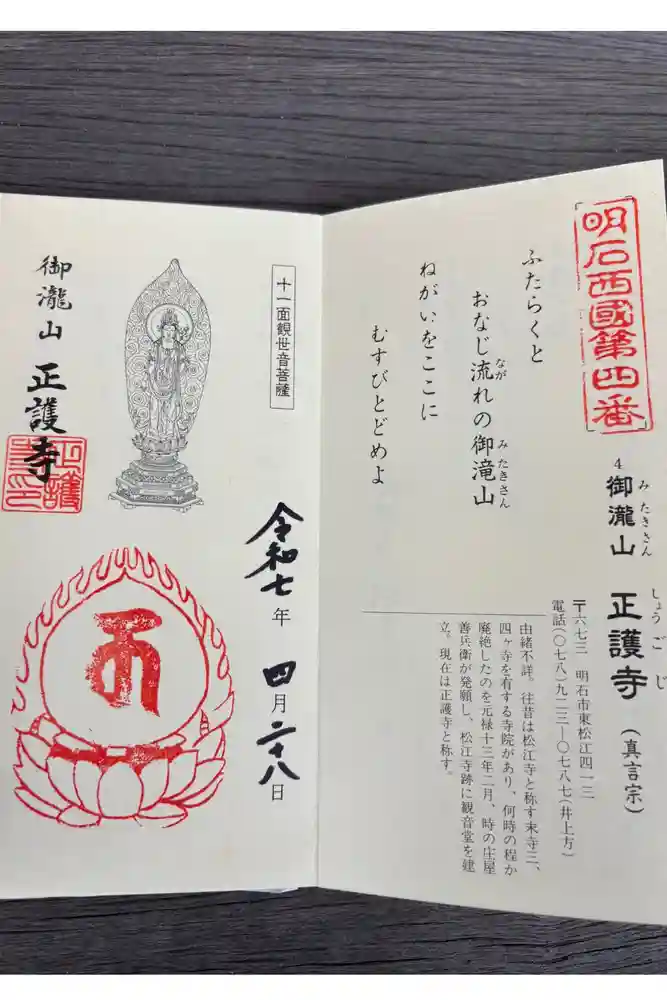 明石西國第四番
4 御瀧山 正護寺 (真言宗)
みたきさん しょうごじ
〒六七三 明石市東松江四一三
電話(〇七八)九二三―〇七八七(井上方)
由緒不詳。往昔は松江寺と称す末寺三、
四ヶ寺を有する寺院があり、何時の程か
廃絶したのを元禄十三年二月、時の庄屋
善兵衛が発願し、松江寺跡に観音堂を建
立。現在は正護寺と称す。
ふたらくと
おなじ流れの御滝山
なが みたきさん
ねがいをここに
むすびとどめよ
十一面観世音菩薩
令和七年 四月二十八日
御瀧山 正護寺